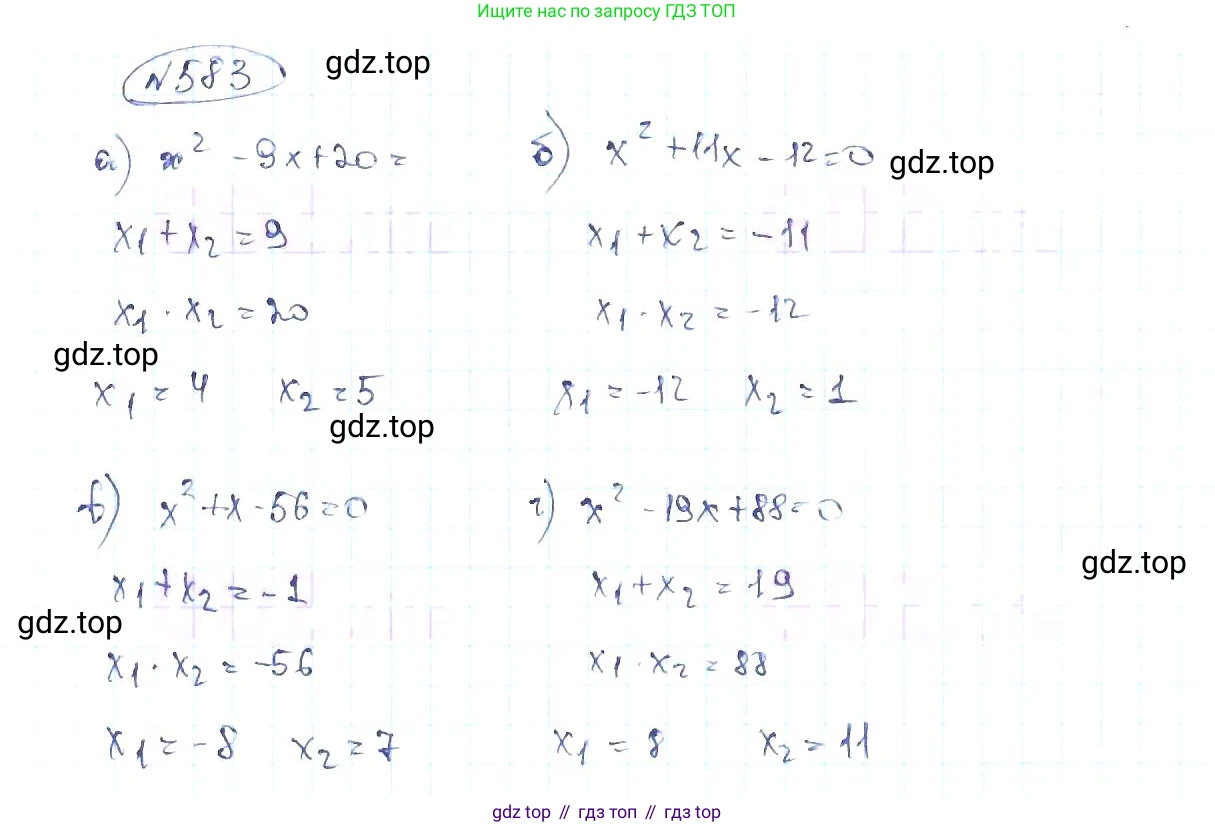 Ищите нас по запросу ГДЗ ТОП
№583
gdz.top
а) x² - 9x + 20 =
x₁ + x₂ = 9
x₁ · x₂ = 20
gdz.top
x₁ = 4 x₂ = 5
gdz.top
б) x² + 11x - 12 = 0
gdz.top
x₁ + x₂ = -11
x₁ · x₂ = -12
x₁ = -12 x₂ = 1
в) x² + x - 56 = 0
x₁ + x₂ = -1
gdz.top
x₁ · x₂ = -56
x₁ = -8 x₂ = 7
г) x² - 19x + 88 = 0
gdz.top
x₁ + x₂ = 19
x₁ · x₂ = 88
x₁ = 8 x₂ = 11
gdz top // гдз топ // gdz top